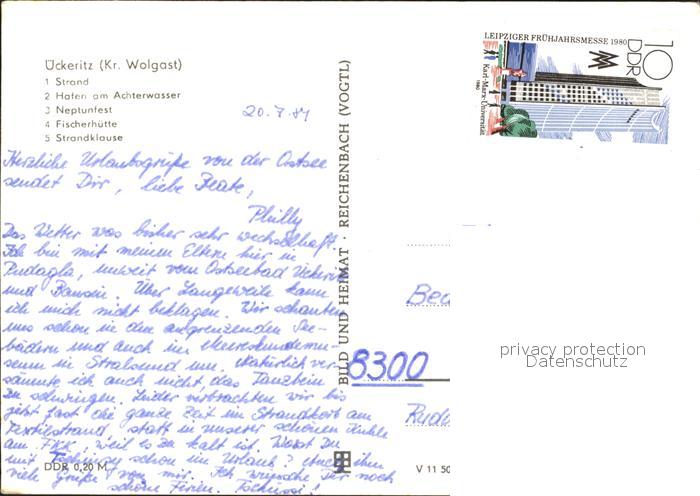 Ückeritz (Kr. Wolgast)
1 Strand
2 Hafen am Achterwasser
3 Neptunfest
4 Fischerhütte
5 Strandklause
20.7.81
Herzliche Urlaubsgrüße von der Ostsee
sendet Dir, liebe Beate,
Philly
Das Wetter was bisher sehr wechselhaft.
Ich bin mit meinen Eltern hier in
Pudagla, unweit vom Ostseebad Ückeritz
und Bansin. Über Langeweile kann
ich mich nicht beklagen. Wir schauten
uns schon in den angrenzenden See-
bädern und auch im Meereskundemu-
seum in Stralsund um. Natürlich ver-
säumte ich auch nicht, das Tanzbein
zu schwingen. Leider verbrachten wir bis
jetzt fast die ganze Zeit im Strandkorb am
Textilstrand, statt in unserer schönen Kuhle
am FKK, weil es zu kalt ist. Warst Du
mit schon im Urlaub? ihm
viele Grüße von mir. Ich wünsche Dir noch
schöne Ferien. Tschüssi!
DDR 0,20 M
BILD UND HEIMAT · REICHENBACH (VOGTL)
V 11 50
LEIPZIGER FRÜHJAHRSMESSE 1980
10
DDR
Karl-Marx-Universität
1980
Bea
8300
privacy protection
Datenschutz